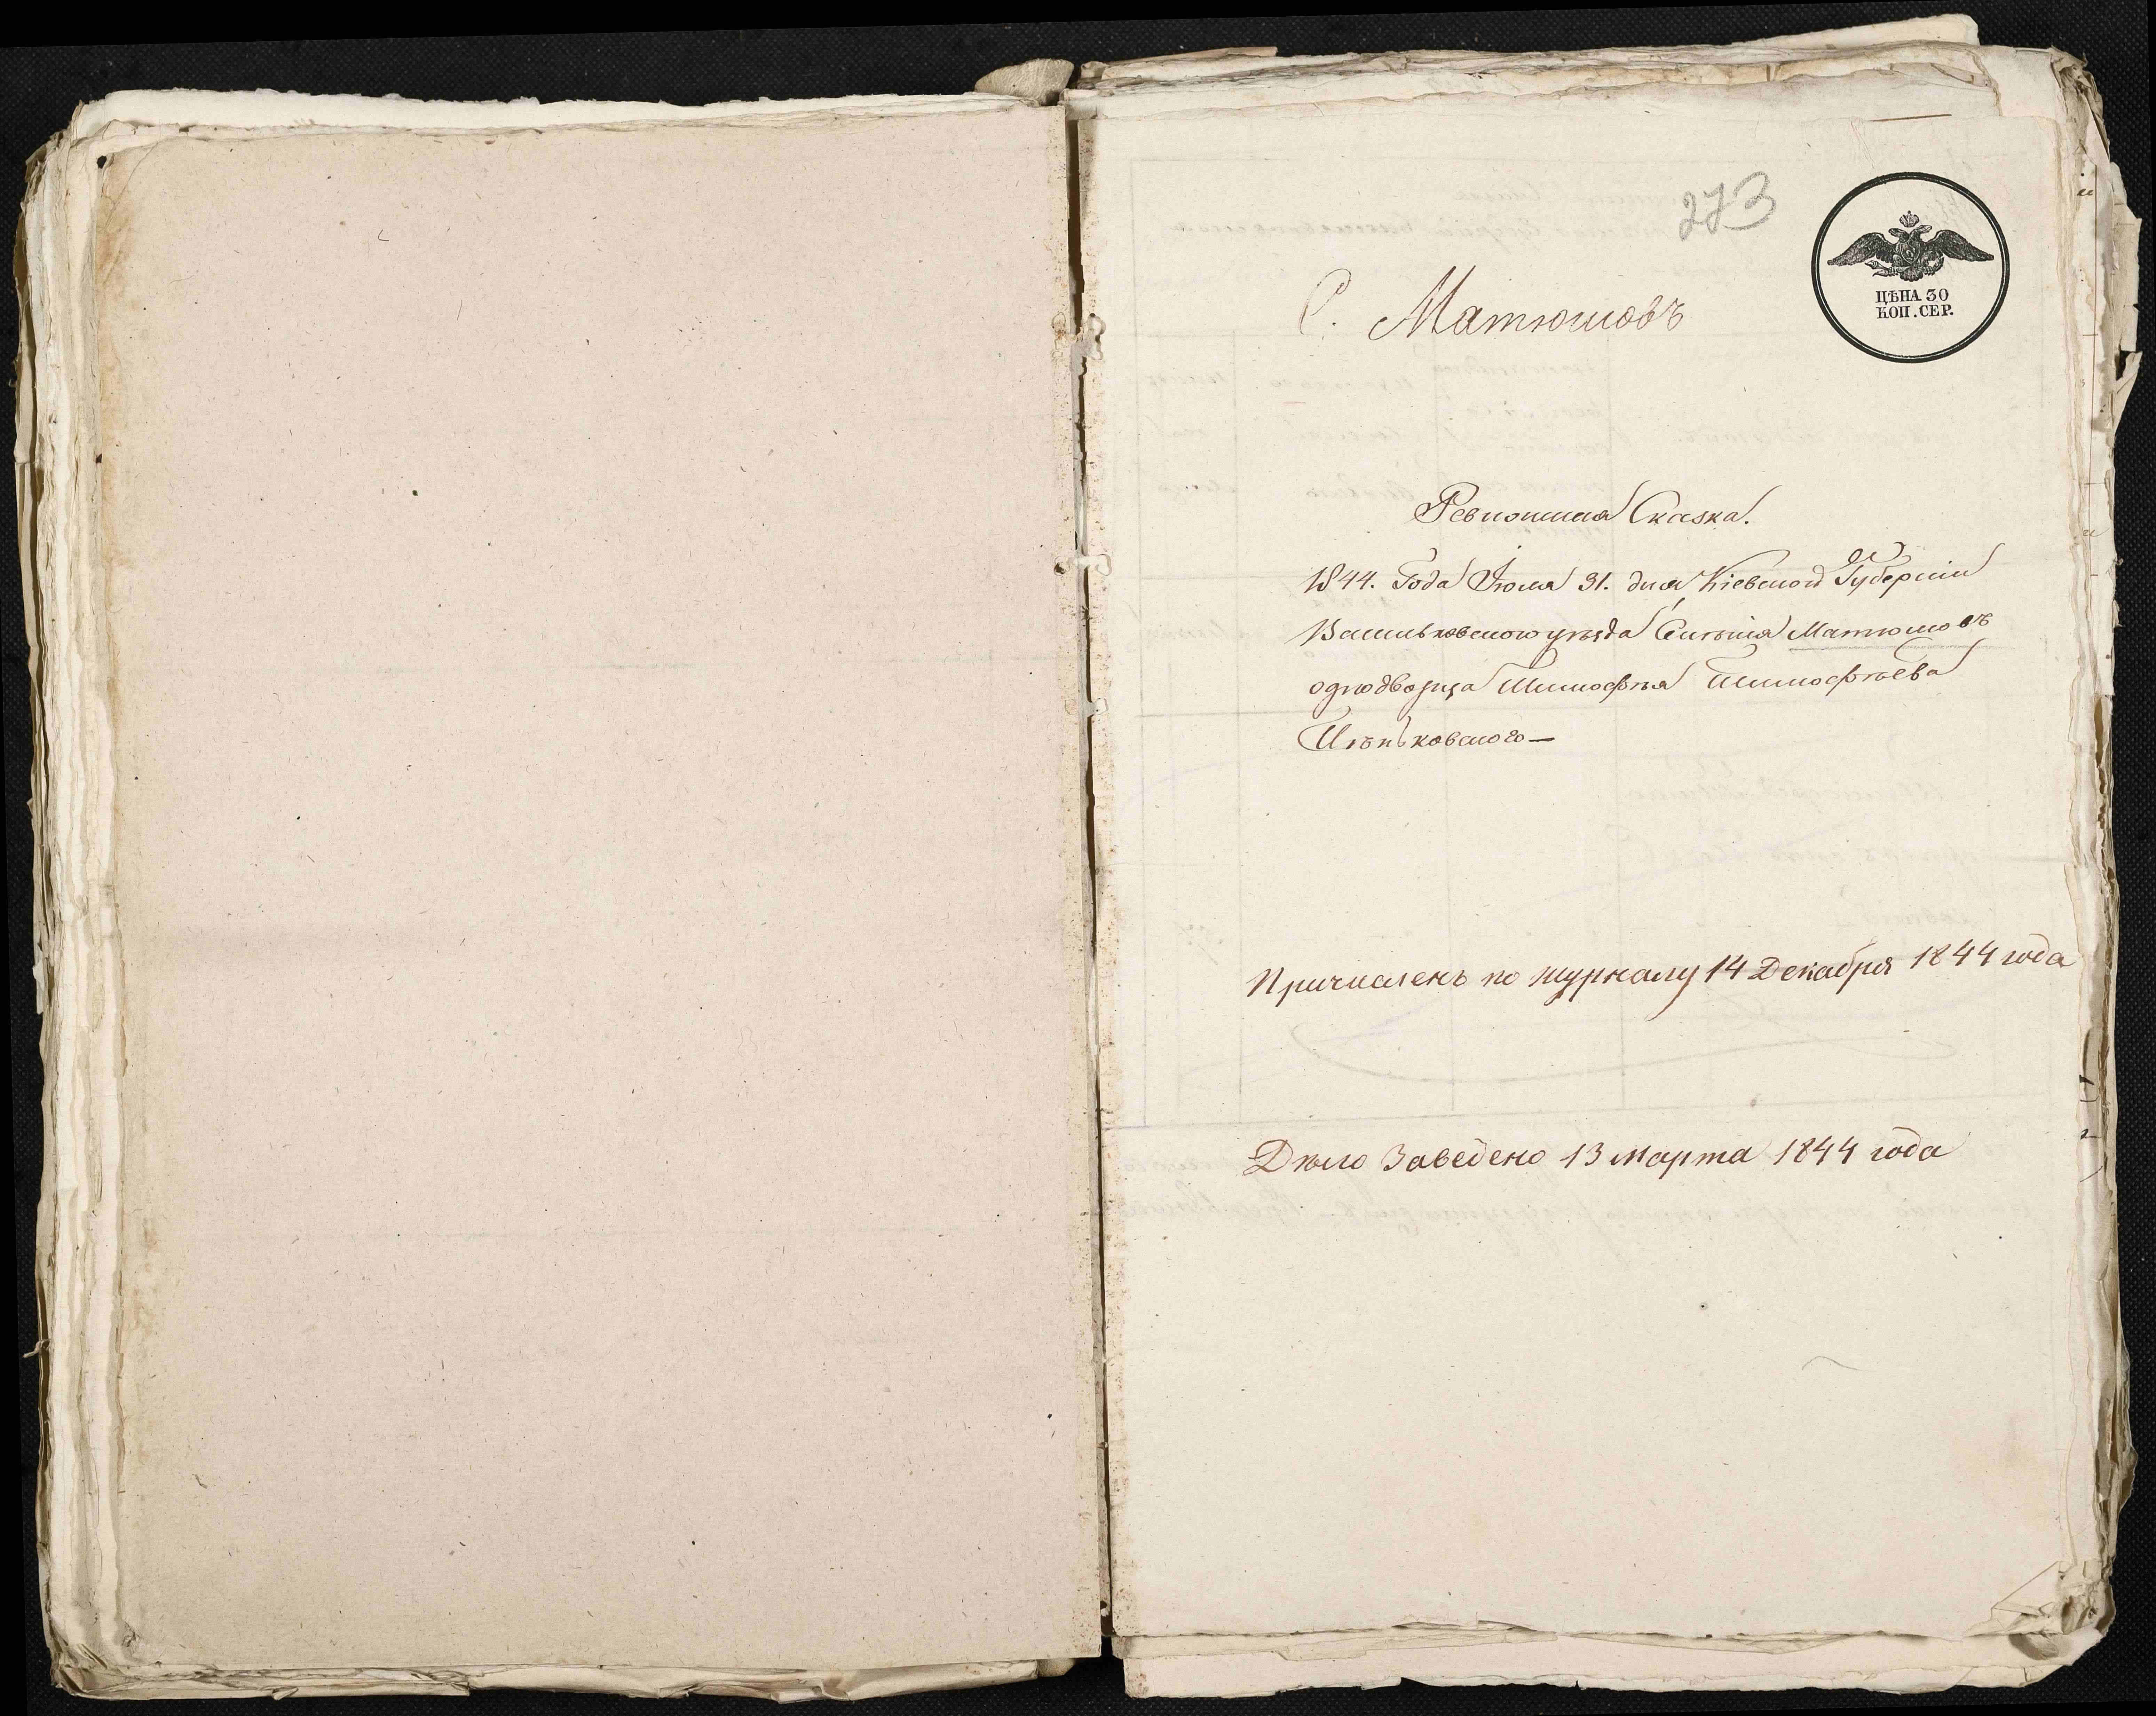 273
ЦѢНА 30
КОП. СЕР.
С. Матюшовъ
Ревизская Сказка.
1844. Года Іюля 31. дня Кіевской Губерніи
Васильковского уезда Селенія Матюшовъ
однодворца Тимофѣя Тимофѣева
Причисленъ по журналу 14 Декабря 1844 года
Дѣло Заведено 13 Марта 1844 года